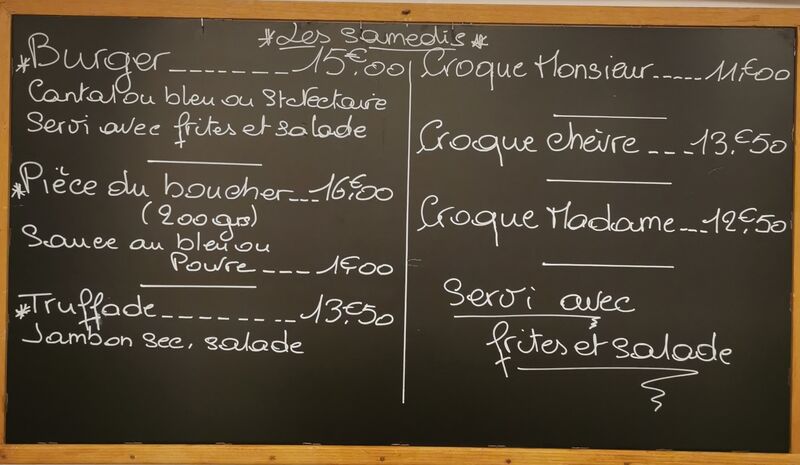 *Les samedis*
*Burger-------15€00
Cantal ou bleu ou St Nectaire
Servi avec frites et salade
*Pièce du boucher---16€00
(200grs)
Sauce au bleu ou
Poivre----1€00
*Truffade--------13€50
Jambon sec, salade
Croque Monsieur-----11€00
Croque chèvre---13€50
Croque Madame---12€50
Servi avec
frites et salade